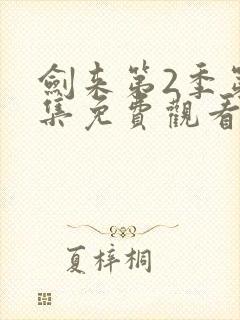 劍来第2季第
集免費觀看
夏梓桐